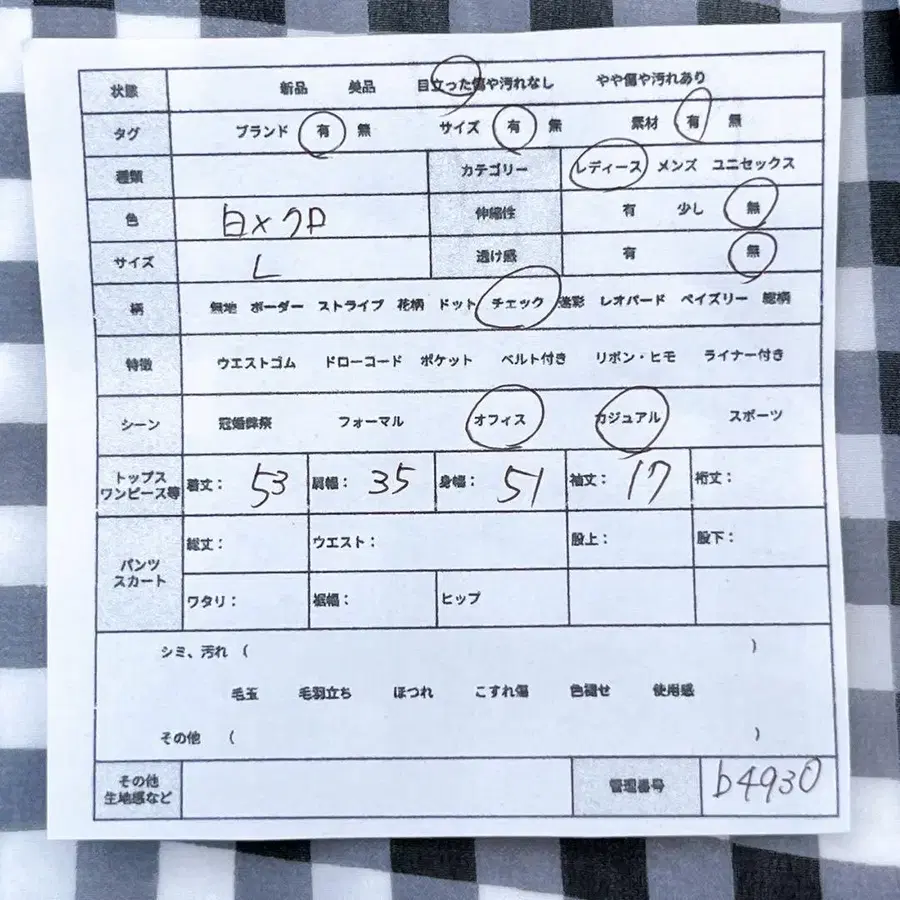 状態 新品 美品 目立った傷や汚れなし やや傷や汚れあり
タグ ブランド 有 無 サイズ 有 無 素材 有 無
種類 カテゴリー レディース メンズ ユニセックス
色 白×クロ 伸縮性 有 少し 無
サイズ L 透け感 有 無
柄 無地 ボーダー ストライプ 花柄 ドット チェック 迷彩 レオパード ペイズリー 総柄
特徴 ウエストゴム ドローコード ポケット ベルト付き リボン・ヒモ ライナー付き
シーン 冠婚葬祭 フォーマル オフィス カジュアル スポーツ
トップス
ワンピース等 着丈: 53 肩幅: 35 身幅: 51 袖丈: 17 裄丈:
パンツ
スカート 総丈: ウエスト: 股上: 股下:
ワタリ: 裾幅: ヒップ
シミ、汚れ ( )
毛玉 毛羽立ち ほつれ こすれ傷 色褪せ 使用感
その他 ( )
その他
生地感など 管理番号 b4930